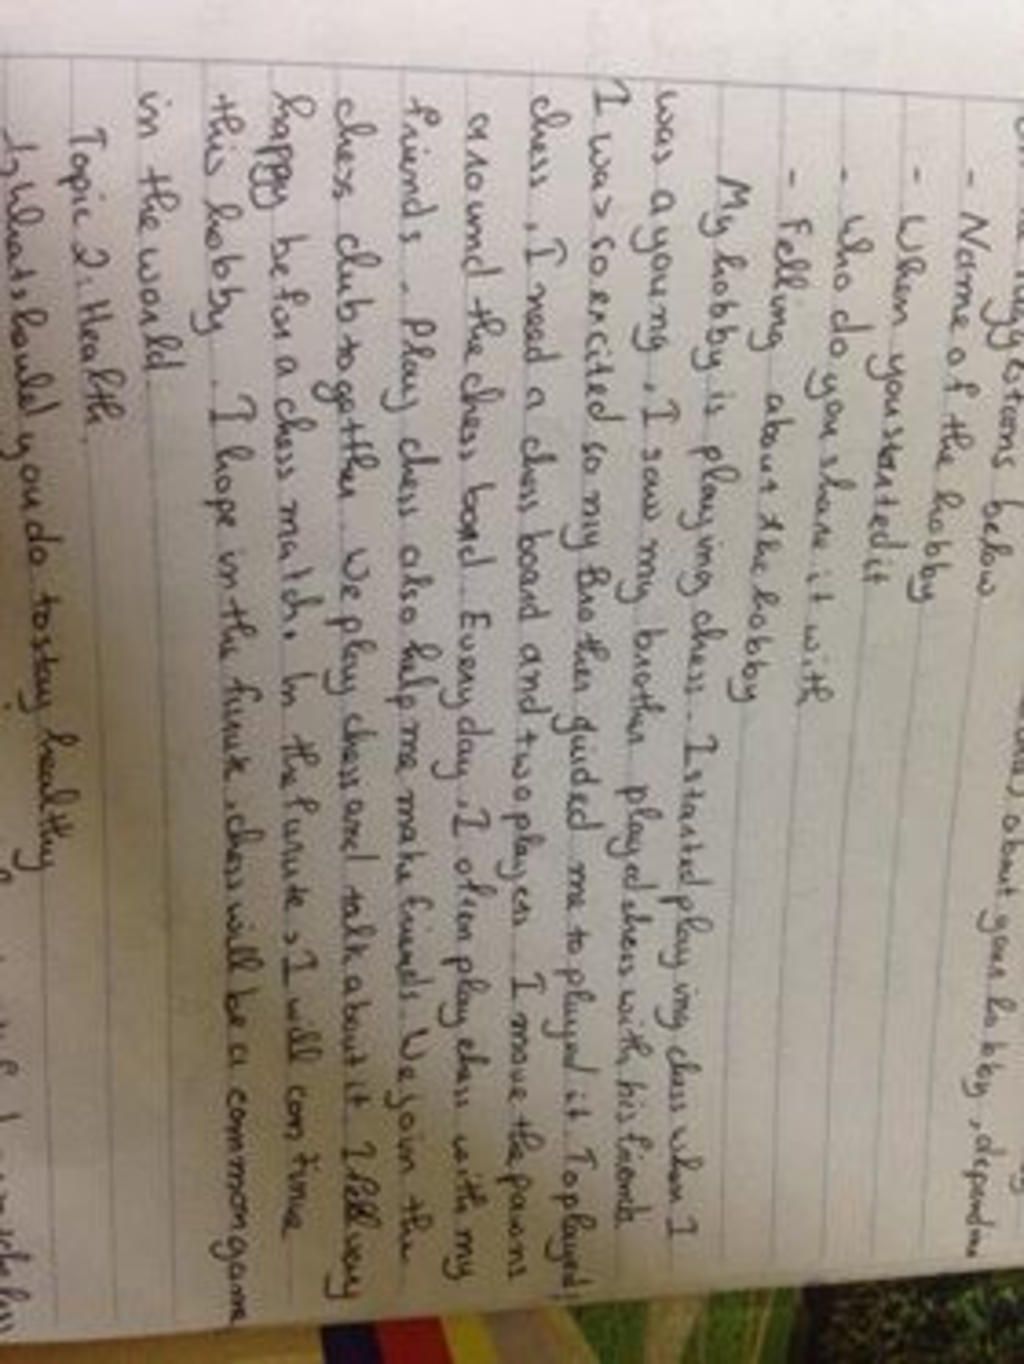 suggestions below about your hobby, depend
- Name of the hobby
- When you started it
- Who do you share it with
- Felling about the hobby
My hobby is playing chess. I started playing chess when I
was a young, I saw my brother played chess with his friends
I was so excited so my Brother guided me to played it. To played
chess, I need a chess board and two player. I move the pawns
around the chess board. Every day, I often play chess with my
friends. Play chess also help me make friends. We join the
chess club togather. We play chess and talk about it. I fell very
happy befor a chess match. In the furute, I will continue
this hobby. I hope in the furute, chess will be a common game
in the world
Topic 2: Health
What should you do to stay healthy